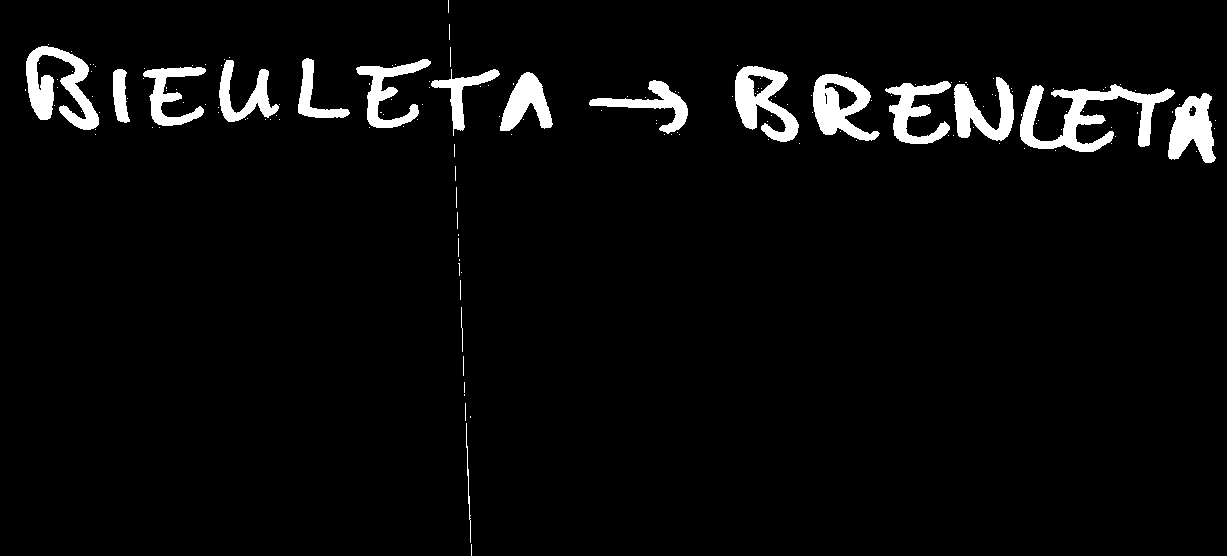 BIEULETA → BRENLETA